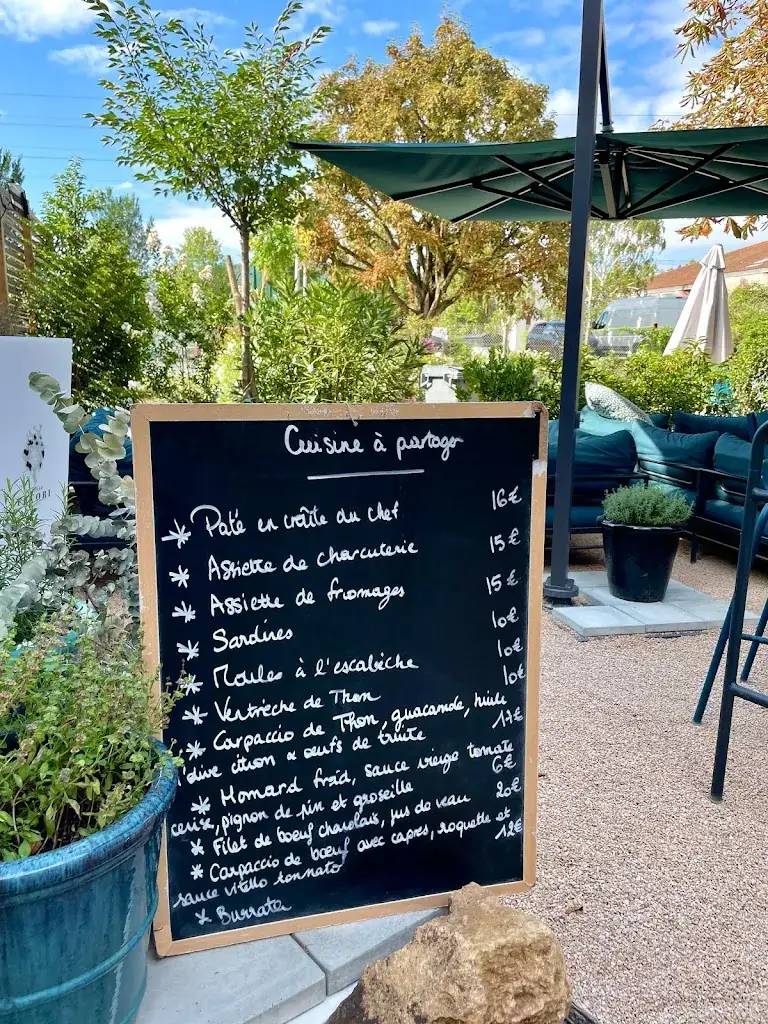 Cuisine à partager
* Paté en croûte du chef 16€
* Assiette de charcuterie 15€
* Assiette de fromages 15€
* Sardines 10€
* Moules à l'escabèche 10€
* Ventrèche de Thon 10€
* Carpaccio de Thon, guacamole, huile
d'olive citron & œufs de truite 17€
* Homard froid, sauce vierge tomate
cerise, pignon de pin et groseille 6€
* Filet de bœuf charolais, jus de veau 20€
* Carpaccio de bœuf avec capres, roquette et
sauce vitello tonnato 12€
* Burrata